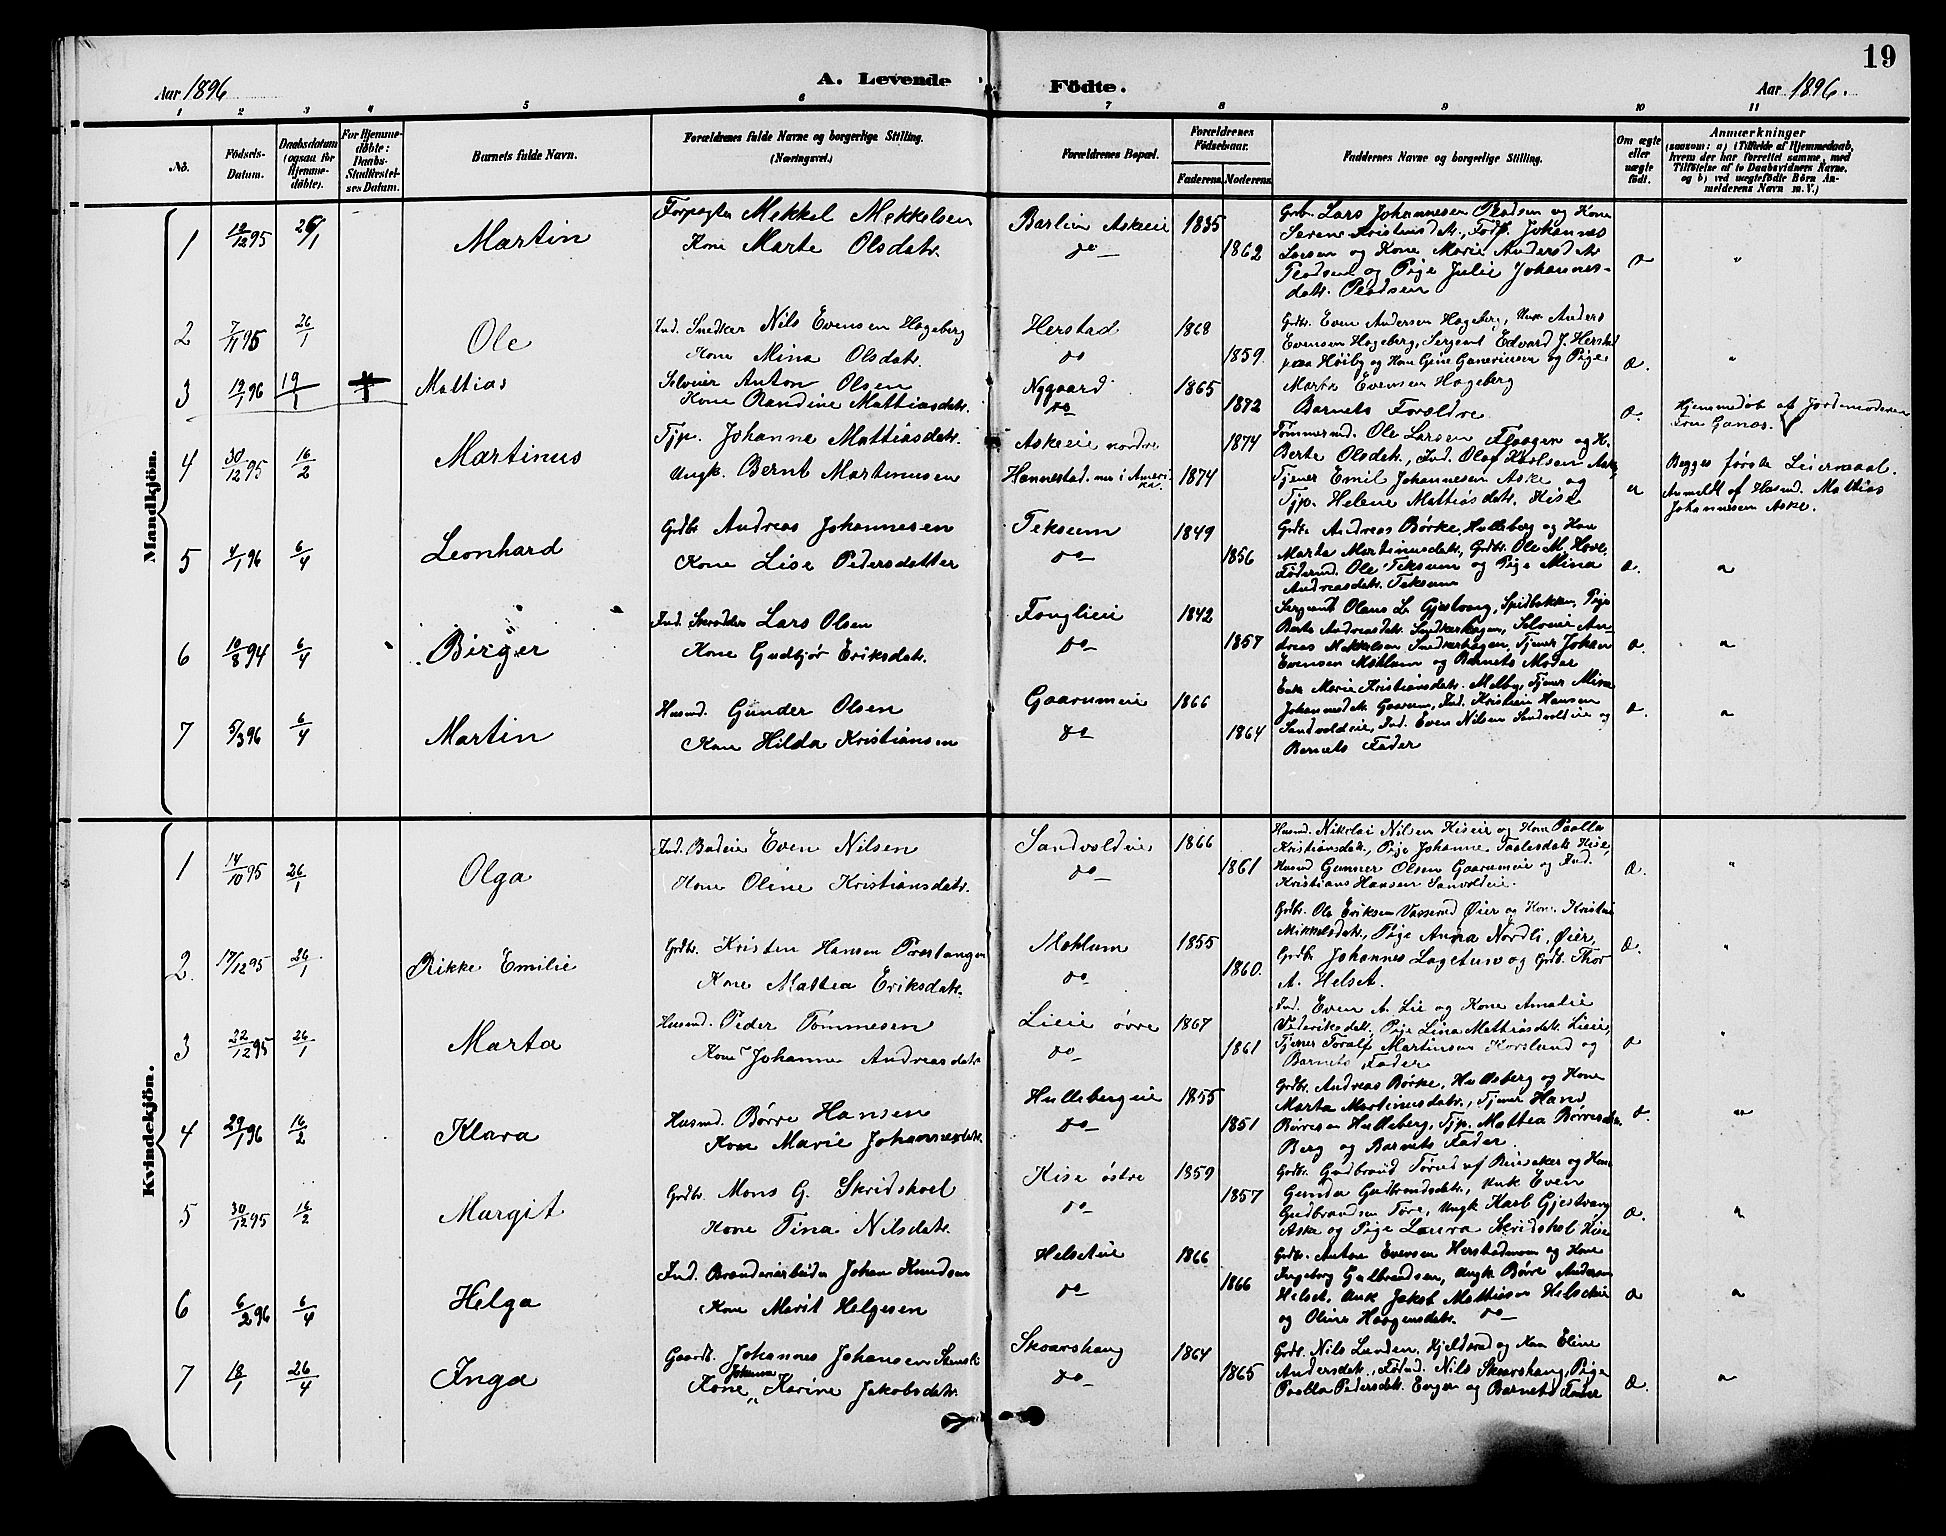 19
Aar 1896
A. Levende Födte.
Aar 1896.
1 2 3 4 5 6 7 8 9 10 11
No.
Födsels-Datum.
Daabsdatum (ogsaa for Hjemme-døbte).
For Hjemme-døbte: Daabs-Stadfæstel-ses Datum.
Barnets fulde Navn.
Forældrenes fulde Navne og borgerlige Stilling. (Næringsvei.)
Forældrenes Bopæl.
Forældrenes Födselsaar.
Faderens. Moderens.
Faddernes Navne og borgerlige Stilling.
Om ægte eller uægte født.
Anmærkninger
(saasom: a) i Tilfælde af Hjemmedaab, hvem der har forrettet samme, med Tilføielse af to Daabsvidners Navne, og b) ved uægtefødte Börn An-melderens Navn m. V.)
Mandkjön.
1 26/1 Martin
Forpagter Mekkel Mekkelsen
Kone Marte Olsdatr.
Barlien Askeie
do
1835
1862
Grbr. Lars Johannesen og Kone
Johannes
Larsen og Kone Marie Andersdatr.
og Pige Julie Johannes-
datr.
2 26/1 Ole
Ind. Snedker Nils Evensen Hageberg
Kone Mina Olsdatr.
Herstad
do
1868
1859.
Grdbr. Even Andersen Hageberg, Unk. Anders
Evensen Hageberg, Sergent Edvard J. Herstad
paa Høiby og Kone og Pige
Marte Evensen Hageberg
æ.
3 19/1 96 19/1 Mattias
Selveier Anton Olsen
Kone Randine Mattiasdatr.
Nygaard
do
1865
1872
Barnets Forældre
æ.
Hjemmedøbt af Jordemoderen
4 30/12 95 16/2 Martinus
Tjp. Johanne Mattiasdatr.
Ungk. Bernt Martinusen
Askeeie nordre
Hannestad. nu i Amerika.
1874
1874
Tømmermd. Ole Larsen og K.
Berte Olsdatr., Ind. Olaf Aske,
Tjener Emil Johannesen Aske og
Tjp. Helene Mattiasdatr. Hise
Begges første Leiermaal.
Anmeldt af Husmd. Mattias
Johannesen Aske.
5 4/1 96 6/4 Leonhard
Grdbr. Andreas Johannesen
Kone Lise Pedersdatter
Teksum
do
1849
1856
Grdbr. Andreas Børke, Hulleberg og Kone
Marte Martinusdatr., Grdbr. Ole M. Hove,
Føderaadmd. Ole Teksum og Pige Mina
Andreasdatr. Teksum
æ.
6 10/8 94 6/4 Birger
Ind. Skrædder Lars Olsen
Kone Gudbjør Eriksdatr.
Fonglieie
do
1842
1857
Sergent Olaus L. Gjestvang, Pige
Berte Andreasdatr. Snedkerhagen, Selveier An-
dreas Mekkelsen Snedkerhagen, Tjener Johan
Evensen Møhlum og Barnets Moder
æ.
7 5/3 96 6/4 Martin
Husmd. Gunder Olsen
Kone Hilda Kristiansen
Gaarumeie
do
1866
1864
Enke Marie Kristiansdatr. Melby, Tjener Mina
Johannesdatr. Gaarum, Ind. Kristian Hansen
Sandvoldeie, Ind. Even Nilsen Sandvoldeie og
Barnets Fader
æ.
Kvindekjön.
1 14/10 95 26/1 Olga
Ind. Even Nilsen
Kone Oline Kristiansdatr.
Sandvoldeie
do
1866
1861
Husmd. Nikolai Nilsen Hiseie og Kone
Kristiansdatr., Pige Johanne Hise,
Husmd Gunner Olsen Gaarumeie og Ind.
Kristians Hansen Sanvoldeie.
æ.
2. 17/12 95 26/1 Rikke Emilie
Grdbr. Kristen Hansen Prestangen
Kone Mattea Eriksdatr.
Mohlum
do
1855
1860.
Grdbr. Ole Eriksen Øier og Kone Kristine
Mikkelsdatr., Pige Anna Nordli, Øier,
Grdbr. Johannes og Grdb. Thor
A. Helset.
æ.
3 22/12 95 26/1 Marta
Husmd. Peder Tommesen
Kone Johanne Andreasdatr.
Lieie øvre
do
1867
1861
Ind. Even A. Lie og Kone Amalie
Pige Lina Mattiasdatr. Lieie,
Tjener Toralf Martinsen Korslund og
Barnets Fader
4 29/1 96 16/2 Klara
Husmd Børre Hansen
Kone Marie Johannesdatr.
Hullebergeie
do
1855
1851
Grdbr. Andreas Børke, Hulleberg og Kone
Marta Martinusdatr., Tjener Hans
Børresen Hulleberg, Tjp. Mattea Børresdatr.
Berg og Barnets Fader.
5 30/12 95 16/2 Margit
Grdbr. Mons G. Skridshol
Kone Tina Nilsdatr.
Hise østre
do
1859
1857
Grdbr. Gudbrand og Kone
Gunda Gudbrandsdatr., Unk Even
Gudbrandsen Ungk Karl Gjestvang
Aske og Pige Laura Skridshol Hise
æ.
6 6/2 96 6/4 Helga
Ind. Brænderiarbeider Johan Knudsen
Kone Marit Helgesen
Helseteie
do
1866
1866
Grdbr. Anton Evensen og Kone
Ingeborg Gulbrandsen, Ungk Børre Andersen
Helset, Unk Jakob Mattiasen Helseteie
og Oline Haagensdatr. do
æ
7 18/1 26/4 Inga
Gaardb. Johannes Johansen
Kone Johanne Karine Jakobsdatr.
Skaarshang
do
1864
1865
Grdb. Nils Lunden, og Kone Eline
Andersdatr., Nils Skaarshang, Pige
Pedersdatr. Enger og Barnets Fader
æ.